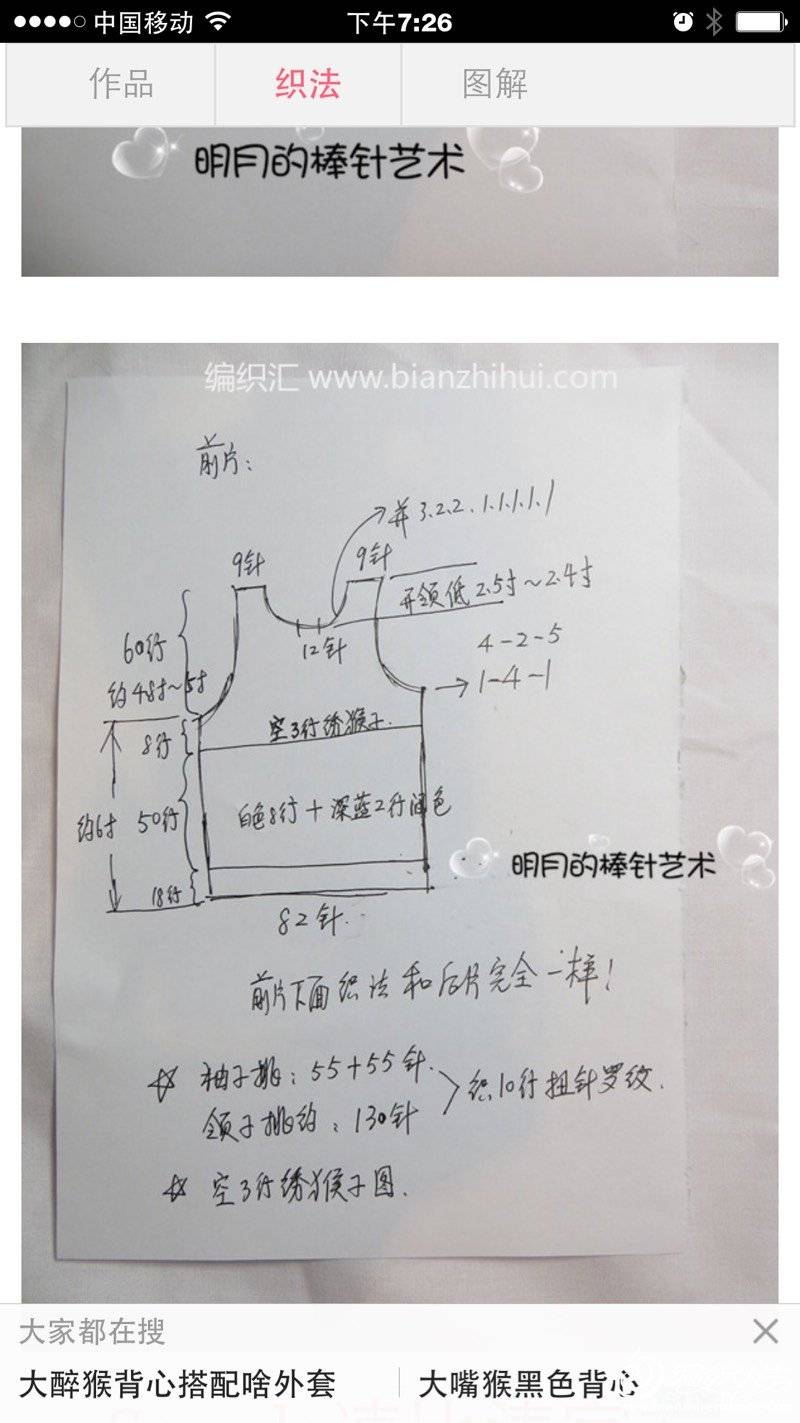 中国移动 下午7:26
作品 织法 图解
明月的棒针艺术
编织汇 www.bianzhihui.com
前片:
并3.2.2.1.1.1.1.1
9针 9针
开领低2.5寸~2.4寸
60行
12针
4-2-5
约4.8寸~5寸
1-4-1
空3行绣猴子.
8行
约6寸 50行
白色8行+深蓝2行间色
明月的棒针艺术
18行
82针.
前片下面织法和后片完全一样!
☆ 袖子挑:55+55针.
织10行扭针罗纹.
领子挑约:130针
☆ 空3行绣猴子图.
大家都在搜
大醉猴背心搭配啥外套 大嘴猴黑色背心